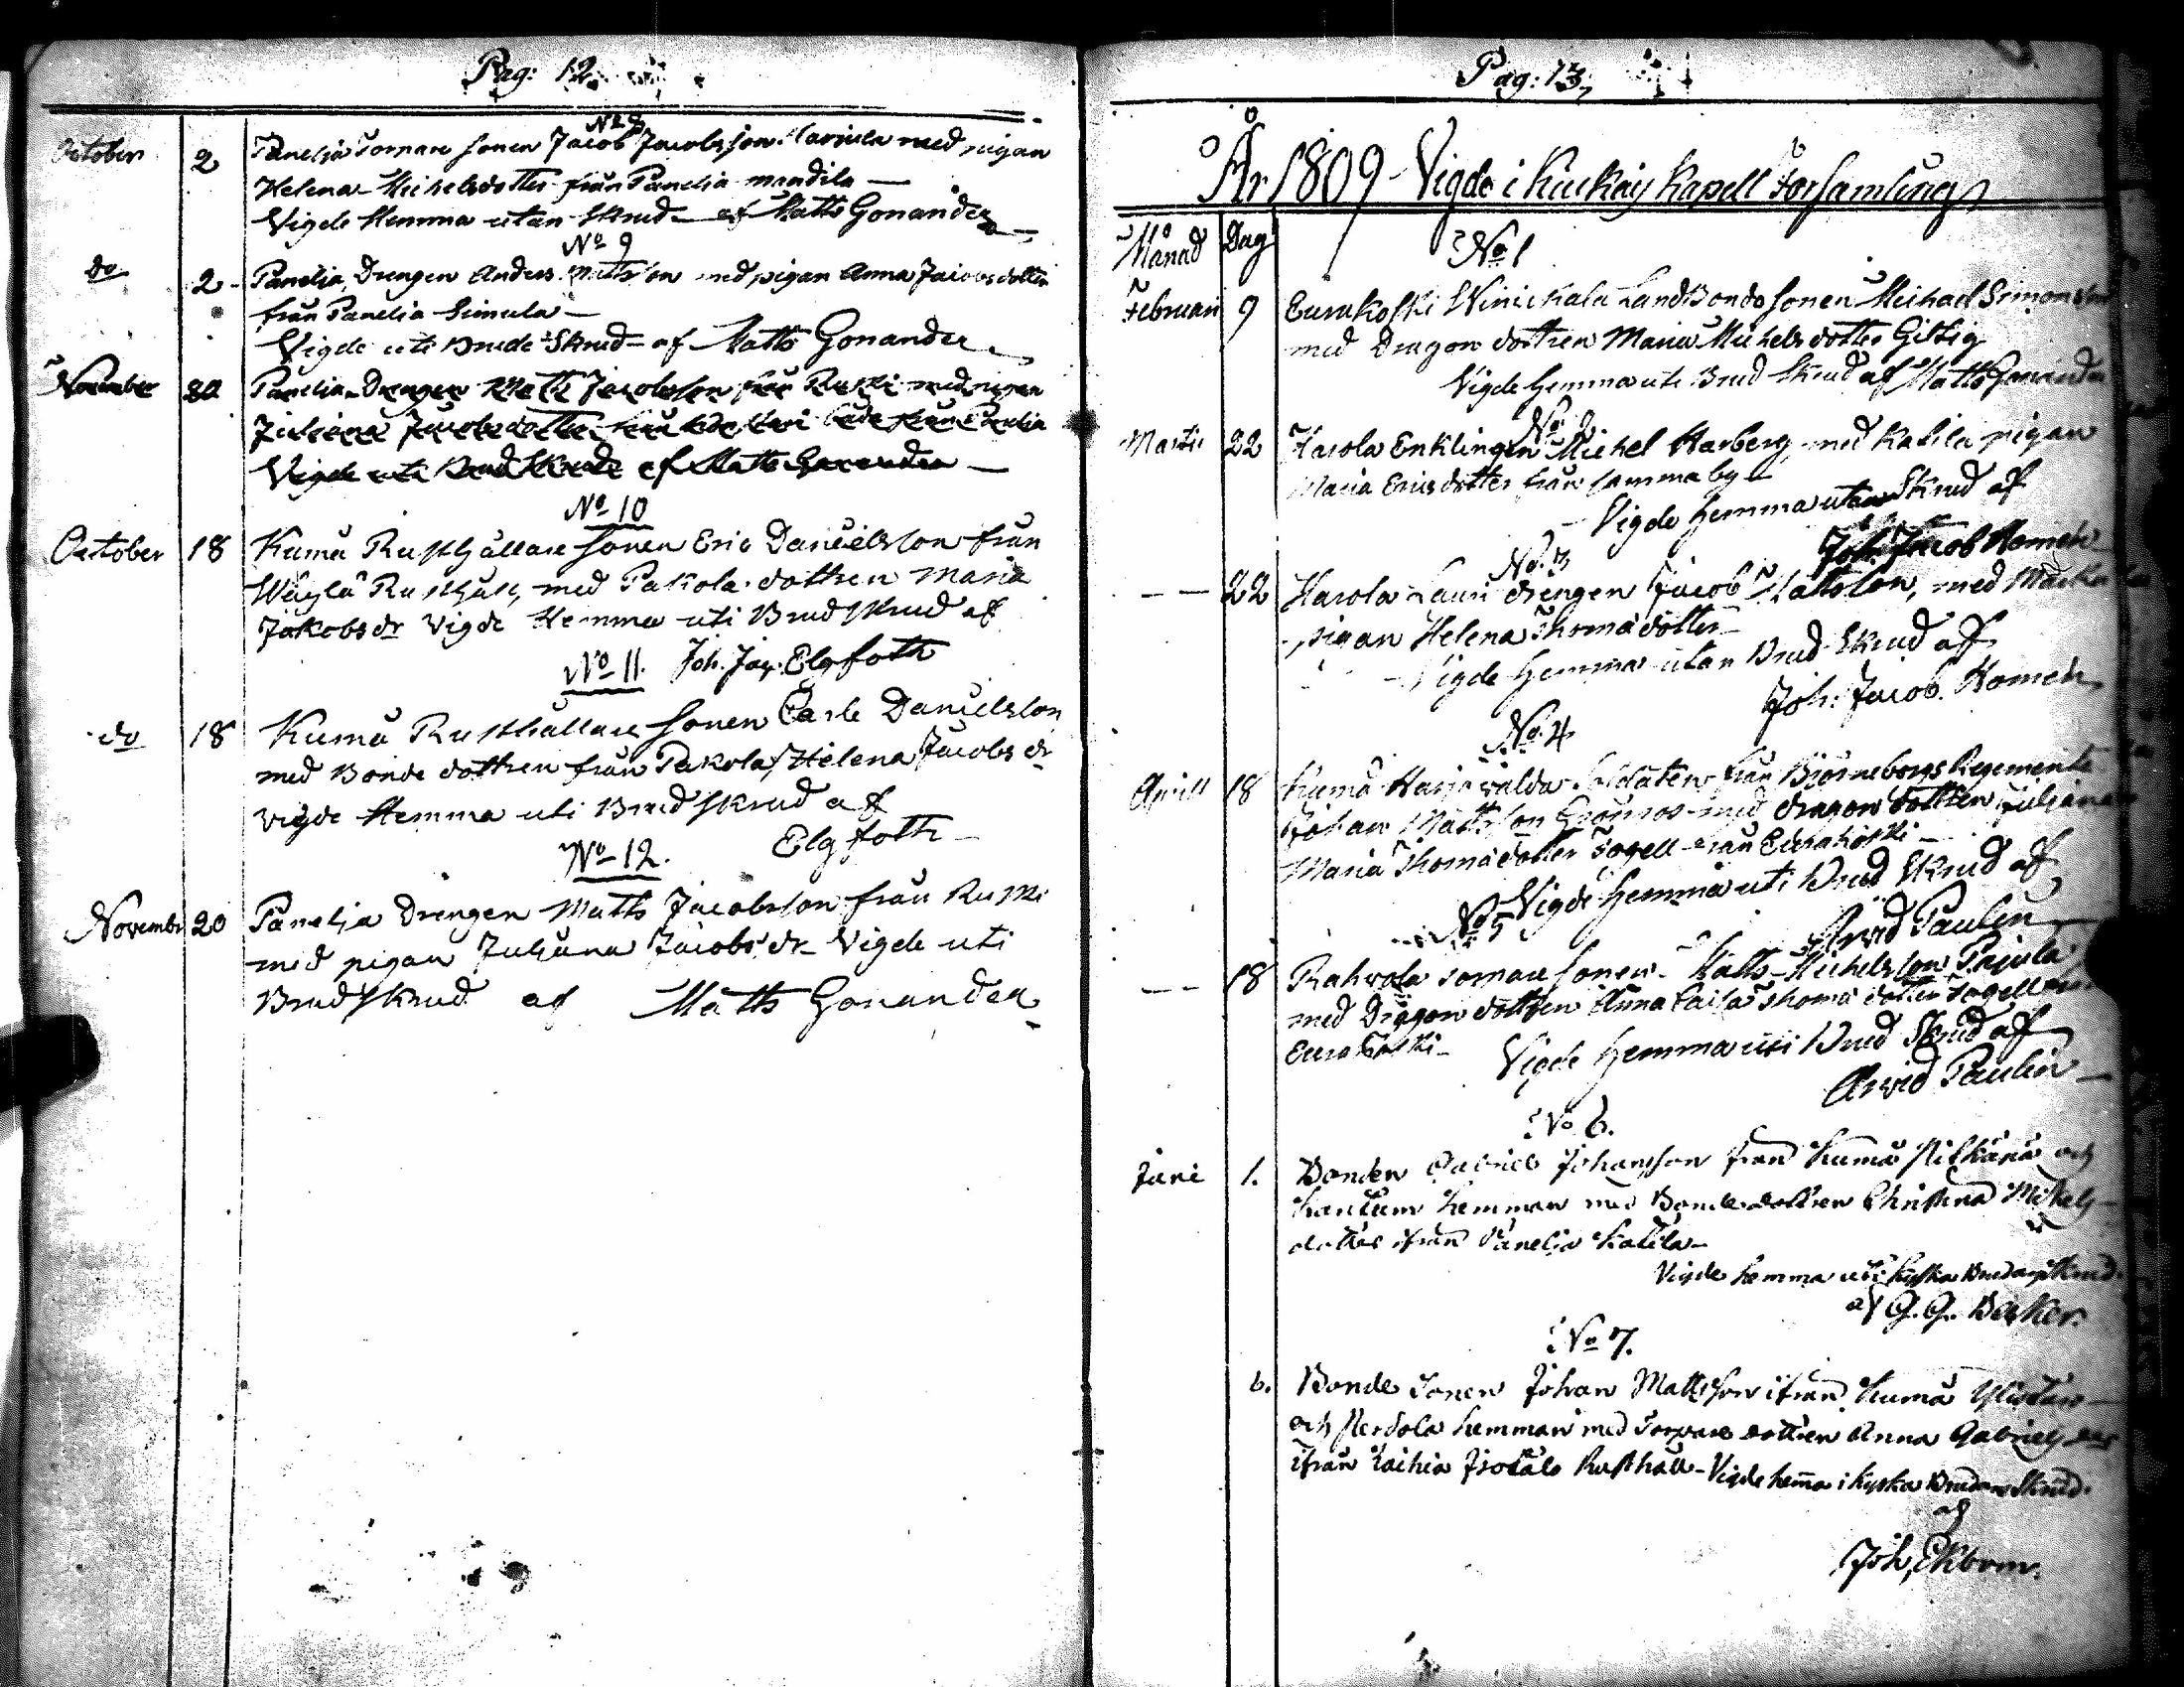 Pag: 12
No 8
October 2 Panelia Torpare sonen Jacob Jacobsson Mariula med pigan
Helena Michelsdotter från Panelia mandila
Vigde Hemma utan Skrud af Matts Gonander
No 9
do 2 Panelia Drengen Anders Mattsson med pigan Anna Jacobsdotter
från Panelia Simula
Vigde uti Brude Skrud af Matts Gonander
November 20 Panelia Drengen Matts Jacobsson från Ruski med pigan
Juliana Jacobsdotter från
Vigde uti Brud Skrud af Matts Gonander
No 10
October 18 Kumå Rusthållare sonen Eric Danielsson från
Rusthåll, med Pakola dottren Maria
Jakobs dr Vigde Hemma uti Brudskrud af
Joh. Jac. Elgfoth
No 11.
do 18 Kumå Rusthållare sonen Carle Danielsson
med Bonde dottren från Pakola, Helena Jacobs dr
vigde Hemma uti Brudskrud af
Elgfoth
No 12.
November 20 Panelia Drengen Matts Jacobsson från Ruski
med pigan Juliana Jacobs dr Vigde uti
Brudskrud af Matts Gonander
Pag: 13
År 1809 Vigde i Kiukais Kapell Församling
Månad Dag
No 1
Februari 9 Eurakoski Winickala Landbonde sonen Michael Simonsson
med Dragon dottren Maria Michelsdotter Gistig
Vigde hemma uti Brud Skrud af Matts Gonander
No 2
Martii 22 Harola Enklingen Michel Harberg med Katila pigan
Maria Ericsdotter från samma by
Vigde hemma utan Skrud af
Joh. Jacob Homén
No. 3
22 Harola Lauri drengen Jacob Mattsson, med
pigan Helena Thomädotter
Vigde Hemma utan Brud Skrud af
Joh. Jacob Homén
No. 4
Aprill 18 Kumå Harjavalda Soldaten från Björneborgs Regemente
Johan Mattsson med dragon dottren Juliana
Maria Thomädotter Fogell från Eurakoski
Vigde hemma uti Brud Skrud af
Arvid Paulin
No 5
18 Rahvola Torpare sonen Matts Michelsson Pajula
med Dragon dottren Anna Caisa Thomä dotter Fogell från
Eurakoski
Vigde hemma uti Brud Skrud af
Arvid Paulin
No 6.
Juni 1. Bonden Gabriel Johansson från Kumå Pitkäniä och
hemman med Bonde dottren Christina Mikels
dotter ifrån Panelia Katila
Vigde hemma uti kyska Brudar Skrud.
af G. G. Becker.
No 7.
6. Bonde Sonen Johan Mattsson ifrån Kumå Ylistaro
och hemman med Torpare dottren Anna Gabriels dr
ifrån Laihia Isotalo Rusthåll Vigde hemma i kyska Brudar Skrud.
af
Joh. Ekbom.